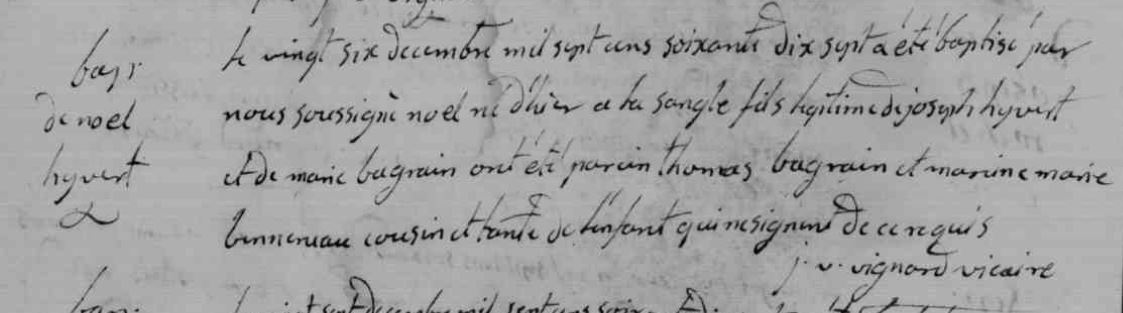 bap.
de noel
hyvert
le vingt six decembre mil sept cens soixante dix sept a été baptisé par
nous soussigné noel né d'hier a la sangle fils legitime de joseph hyvert
et de marie bagrain ont été parein thomas bagrain et mareine marie
bennereau cousin et tante de l'enfant qui ne signent de ce requis
j. v. vignard vicaire
bap.
le vingt sept decembre mil sept cens soix.